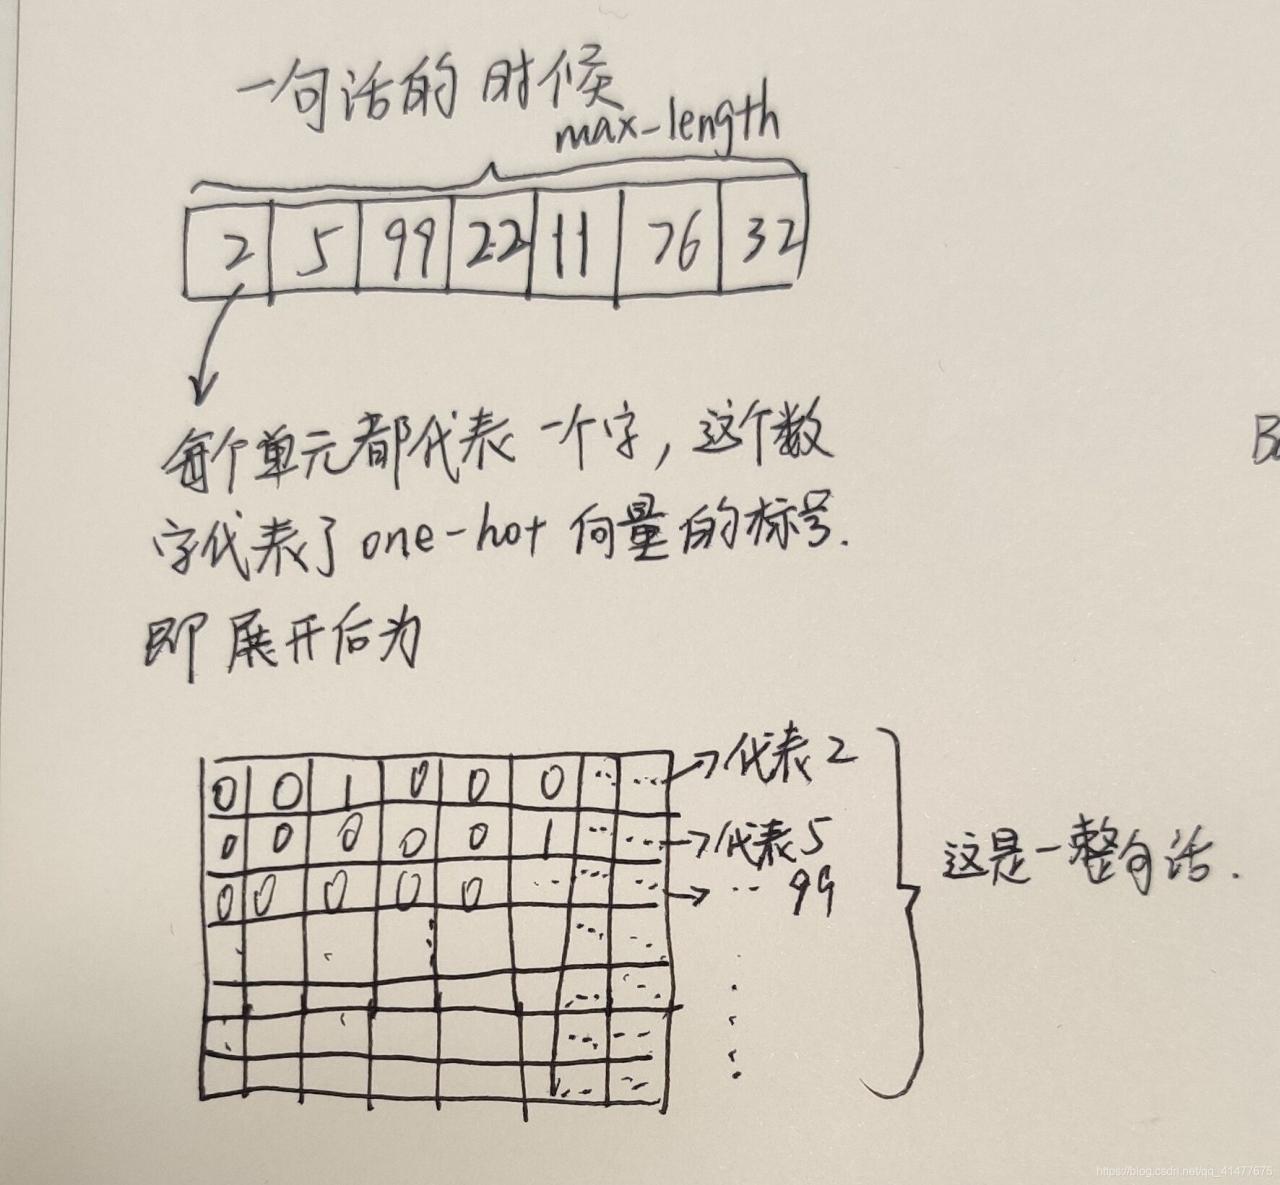 一句话的时候
max-length
2 5 99 22 11 76 32
每个单元都代表一个字，这个数
字代表了one-hot向量的标号.
即展开后为
0 0 1 0 0 0 ... ... →代表2
0 0 0 0 0 1 ... ... →代表5
0 0 0 0 0 ... ... ... → ... 99
这是一整句话.
https://blog.csdn.net/qq_41477675